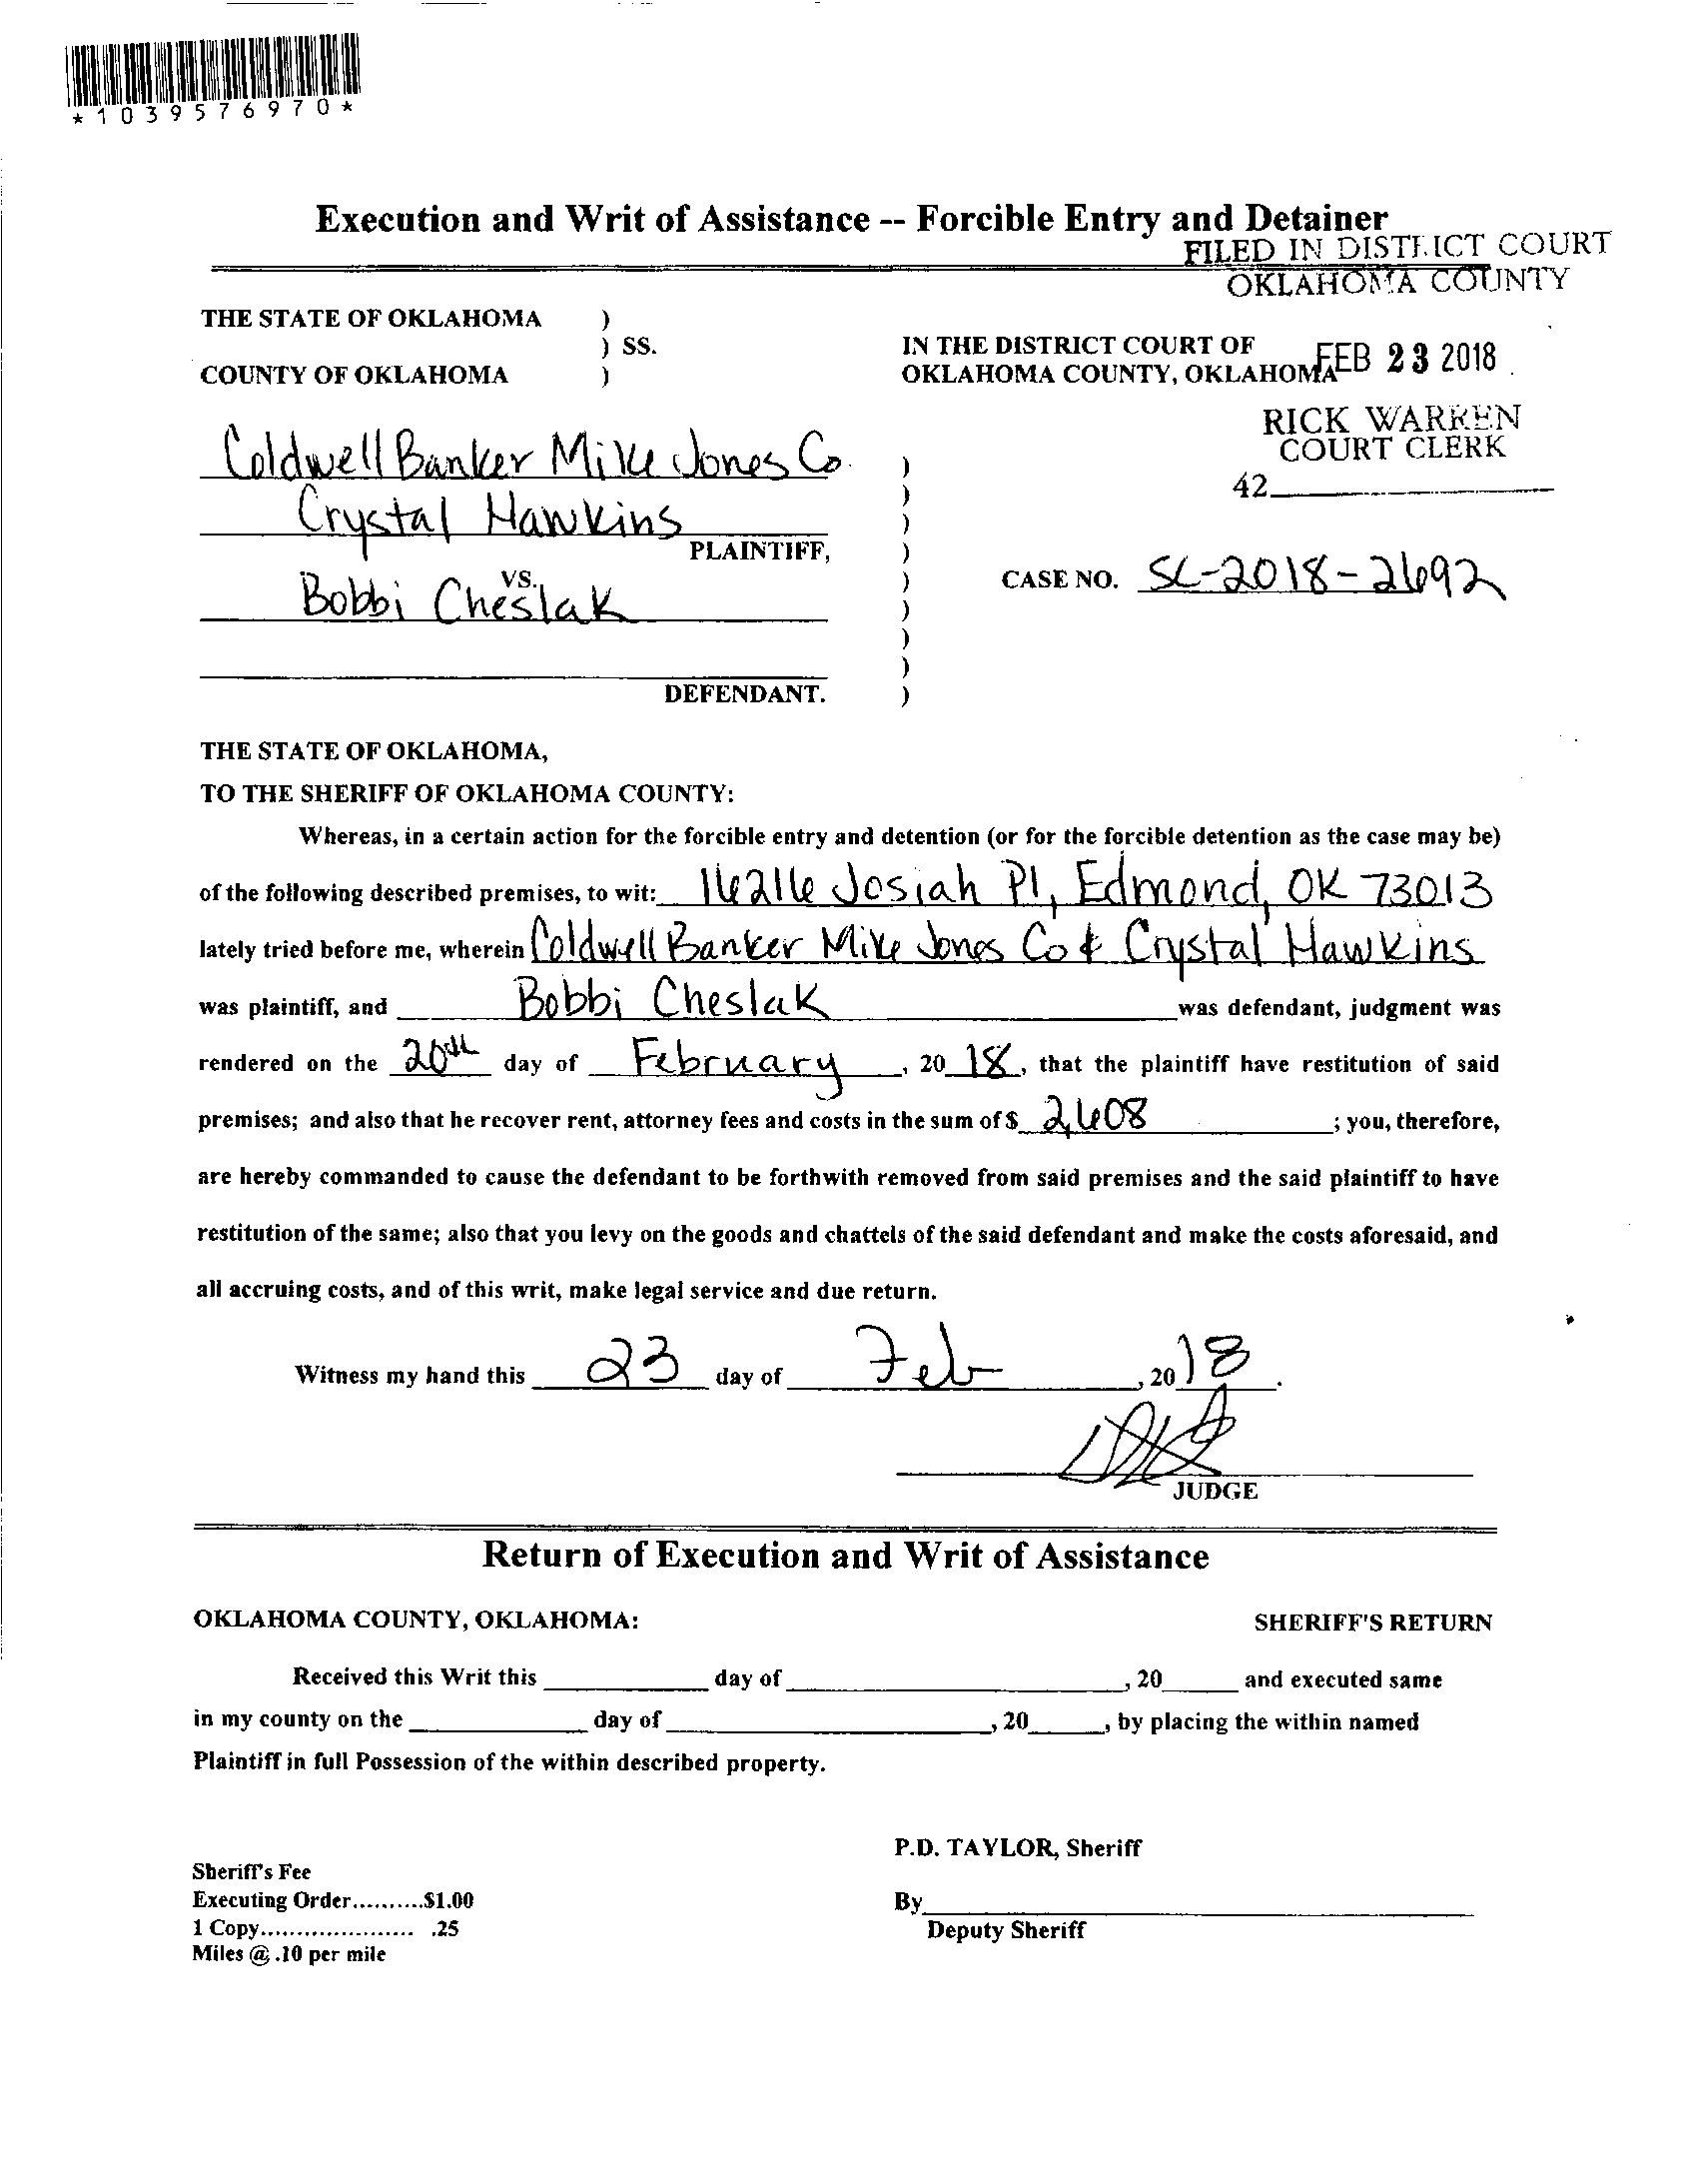 *1039576970*
Execution and Writ of Assistance -- Forcible Entry and Detainer
FILED IN DISTRICT COURT
OKLAHOMA COUNTY
THE STATE OF OKLAHOMA )
) SS.
COUNTY OF OKLAHOMA )
IN THE DISTRICT COURT OF
OKLAHOMA COUNTY, OKLAHOMA
FEB 23 2018
RICK WARREN
COURT CLERK
42
Coldwell Banker Mike Jones Co. )
)
Crystal Hawkins )
PLAINTIFF, )
VS. )
CASE NO. SC-2018-2692
Bobbi Cheslak )
)
)
DEFENDANT. )
THE STATE OF OKLAHOMA,
TO THE SHERIFF OF OKLAHOMA COUNTY:
Whereas, in a certain action for the forcible entry and detention (or for the forcible detention as the case may be)
of the following described premises, to wit: 16216 Josiah Pl, Edmond, OK 73013
lately tried before me, wherein Coldwell Banker Mike Jones Co & Crystal Hawkins
was plaintiff, and Bobbi Cheslak was defendant, judgment was
rendered on the 20th day of February, 20 18, that the plaintiff have restitution of said
premises; and also that he recover rent, attorney fees and costs in the sum of $ 2,608 ; you, therefore,
are hereby commanded to cause the defendant to be forthwith removed from said premises and the said plaintiff to have
restitution of the same; also that you levy on the goods and chattels of the said defendant and make the costs aforesaid, and
all accruing costs, and of this writ, make legal service and due return.
Witness my hand this 23 day of Feb, 20 18.
JUDGE
Return of Execution and Writ of Assistance
OKLAHOMA COUNTY, OKLAHOMA: SHERIFF'S RETURN
Received this Writ this ____ day of ____, 20____ and executed same
in my county on the ____ day of ____, 20____, by placing the within named
Plaintiff in full Possession of the within described property.
P.D. TAYLOR, Sheriff
Sheriff's Fee
Executing Order..........$1.00
1 Copy..................... .25
Miles @ .10 per mile
By____
Deputy Sheriff